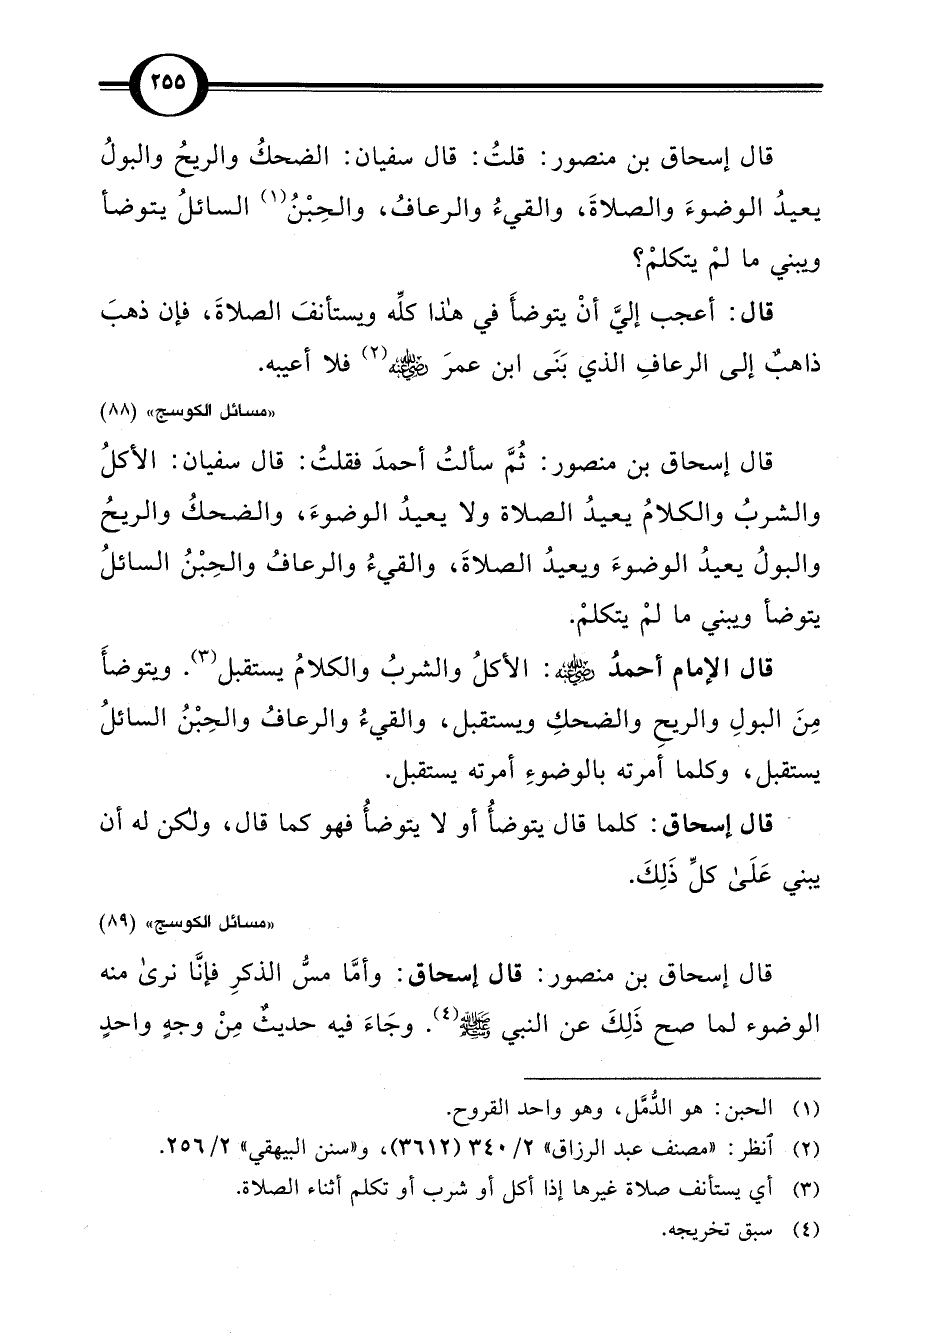 ٢٥٥
قال إسحاق بن منصور: قلتُ: قال سفيان: الضحكُ والريحُ والبولُ
يعيدُ الوضوءَ والصلاةَ، والقيءُ والرعافُ، والحِبْنُ(١) السائلُ يتوضأ
ويبني ما لمْ يتكلمْ؟
قال: أعجب إليَّ أنْ يتوضأَ في هٰذا كلِّه ويستأنفَ الصلاةَ، فإن ذهبَ
ذاهبٌ إلى الرعافِ الذي بَنَى ابن عمرَ رضي الله عنه(٢) فلا أعيبه.
«مسائل الكوسج» (٨٨)
قال إسحاق بن منصور: ثُمَّ سألتُ أحمدَ فقلتُ: قال سفيان: الأكلُ
والشربُ والكلامُ يعيدُ الصلاة ولا يعيدُ الوضوءَ، والضحكُ والريحُ
والبولُ يعيدُ الوضوءَ ويعيدُ الصلاةَ، والقيءُ والرعافُ والحِبْنُ السائلُ
يتوضأ ويبني ما لمْ يتكلمْ.
قال الإمام أحمدُ رضي الله عنه: الأكلُ والشربُ والكلامُ يستقبل(٣). ويتوضأَ
مِنَ البولِ والريحِ والضحكِ ويستقبل، والقيءُ والرعافُ والحِبْنُ السائلُ
يستقبل، وكلما أمرته بالوضوءِ أمرته يستقبل.
قال إسحاق: كلما قال يتوضأُ أو لا يتوضأُ فهو كما قال، ولكن له أن
يبني عَلَىٰ كلِّ ذَلِكَ.
«مسائل الكوسج» (٨٩)
قال إسحاق بن منصور: قال إسحاق: وأمَّا مسُّ الذكرِ فإنَّا نرىٰ منه
الوضوء لما صح ذَلِكَ عن النبي ﷺ(٤). وجَاءَ فيه حديثٌ مِنْ وجهٍ واحدٍ
(١) الحبن: هو الدُّمَّل، وهو واحد القروح.
(٢) ٱنظر: «مصنف عبد الرزاق» ٢/ ٣٤٠ (٣٦١٢)، و«سنن البيهقي» ٢/ ٢٥٦.
(٣) أي يستأنف صلاة غيرها إذا أكل أو شرب أو تكلم أثناء الصلاة.
(٤) سبق تخريجه.